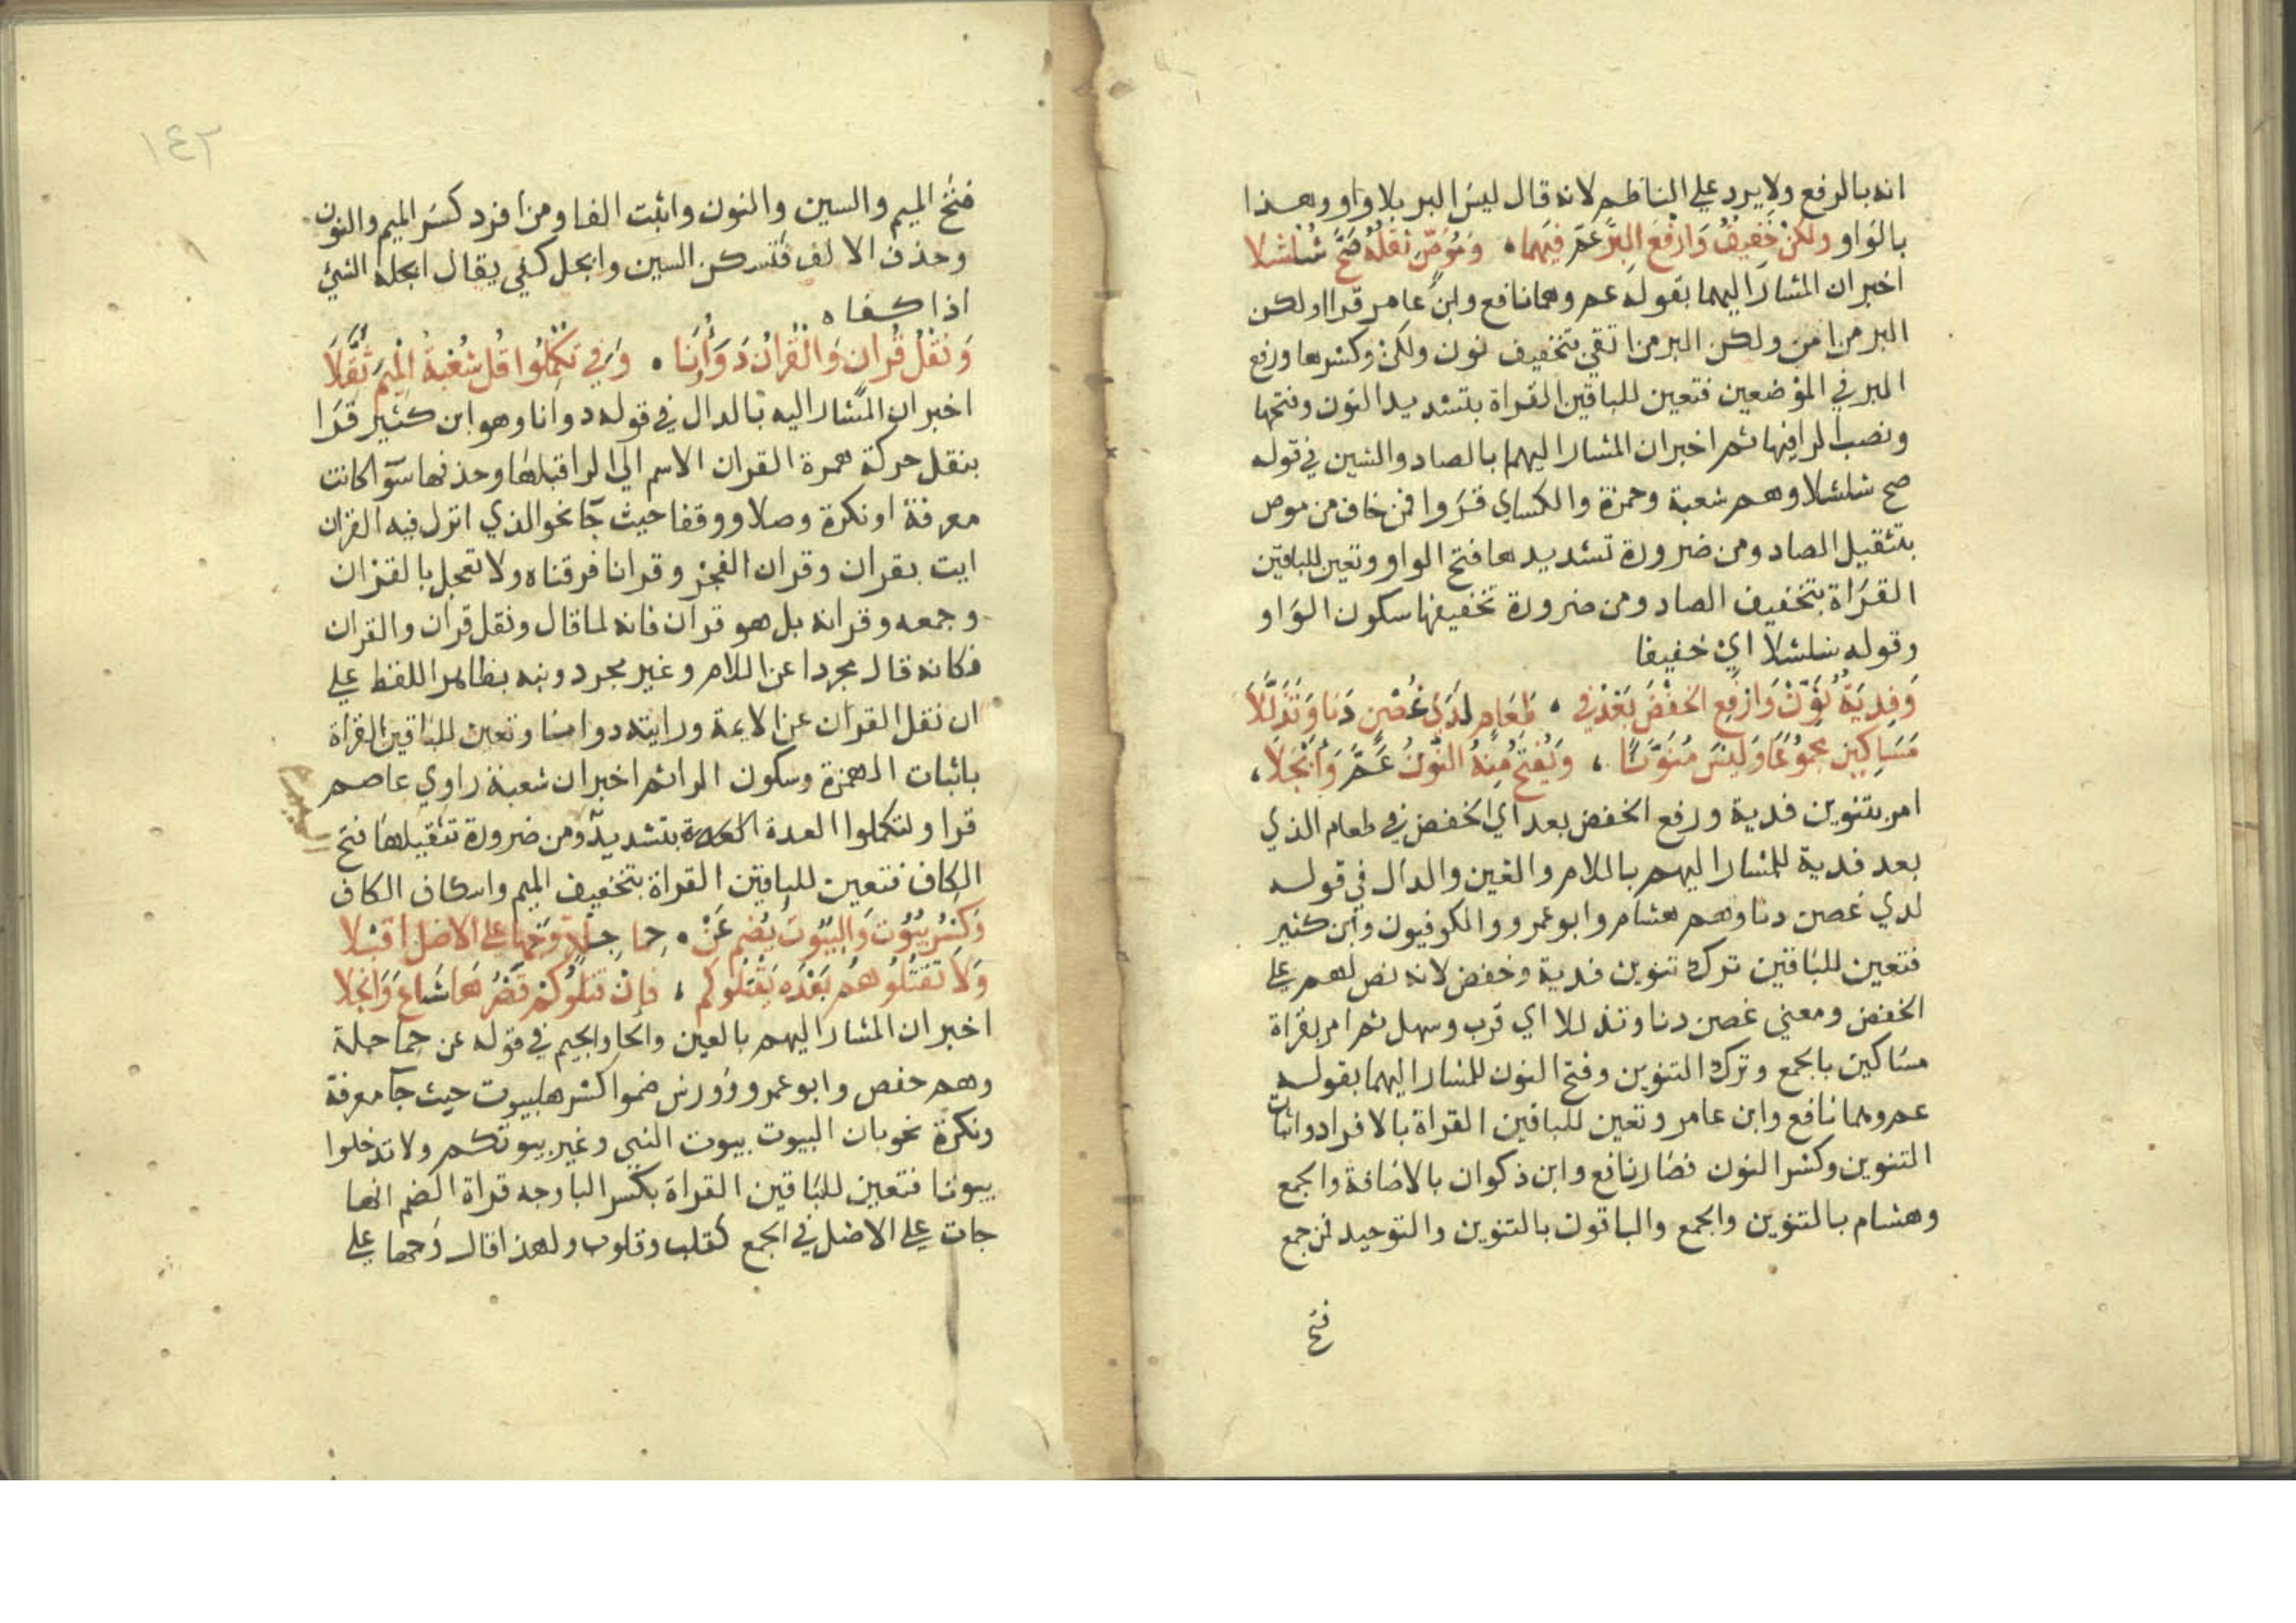 انه بالرفع ولا يرد على الناظم لانه قال ليس البر بلا واو وهذا
بالواو ولكن خفيف وارفع البر عم فيهما ه وموص ثقله صح شلشلا
اخبر ان المشار اليهما بقوله عم وهما نافع وابن عامر قراا ولكن
البر من امن ولكن البر من اتقى بتخفيف نون ولكن وكسرها ورفع
البر في الموضعين فتعين للباقين القراة بتشديد النون وفتحها
ونصب الرا فيها ثم اخبر ان المشار اليهم بالصاد والشين في قوله
صح شلشلا وهم شعبة وحمزة والكساي قروا فمن خاف من موص
بتثقيل الصاد ومن ضرورة تشديدها فتح الواو وتعين للباقين
القراة بتخفيف الصاد ومن ضرورة تخفيفها سكون الواو
وقوله شلشلا اي خفيفا
وَفِديَةٌ نَوِّنْ وَارْفَعِ الخَفْضَ بَعْدُ في ، طَعَامٍ لَدَى غُصْنٍ دَنَا وَتَذَلَّلَا
مَسَاكِينَ مجمُوعًا وَلَيْسَ مُنَوَّنًا ، وَيُفْتَحُ مِنْهُ النُّونُ عَمَّ وَأَبْجَلَا ،
امر بتنوين فدية ورفع الخفض بعد اي الخفض في طعام الذي
بعد فدية للمشار اليهم باللام والغين والدال في قوله
لدي غصن دنا وهم هشام وابو عمرو والكوفيون وابن كثير
فتعين للباقين ترك تنوين فدية وخفض لانه نص لهم على
الخفض ومعني غصن دنا وتذللا اي قرب وسهل ثم امر بقراة
مساكين بالجمع وترك التنوين وفتح النون للمشار اليهما بقوله
عم وهما نافع وابن عامر وتعين للباقين القراة بالافراد واثبات
التنوين وكسر النون فصار نافع وابن ذكوان بالاضافة والجمع
وهشام بالتنوين والجمع والباقون بالتنوين والتوحيد فمن جمع
فتح
١٤٢
فتح الميم والسين والنون واثبت الفا ومن افرد كسر الميم والنون
وحذف الالف فتسكن السين وابجل كفي يقال ابجله الشئ
اذا كفاه
وَنَقْلُ قُرانٍ وَالْقُرانِ دَوَاؤُنَا . وَفِي تُكْمِلُوا قُلْ شُعْبَةُ الْمِيمَ ثَقَّلَا
اخبر ان المشار اليه بالدال في قوله دوانا وهو ابن كثير قرا
بنقل حركة همزة القران الاسم الي الرا قبلها وحذفها سوا كانت
معرفة او نكرة وصلا ووقفا حيث جا نحو الذي انزل فيه القران
ايت بقران وقران الفجر وقرانا فرقناه ولا تعجل بالقران
وجمعه وقرانه بل هو قران فانه لما قال ونقل قران والقران
فكانه قال مجردا عن اللام وغير مجرد ونبه بظاهر اللفظ على
ان نقل القران عن الايمة وروايته دوامنا وتعين للباقين القراة
باثبات الهمزة وسكون الرا ثم اخبر ان شعبة راوي عاصم
قرا ولتكملوا العدة بتشديد ومن ضرورة تثقيلها فتح
الميم
الكاف فتعين للباقين القراة بتخفيف الميم واسكان الكاف
وَكَسْرُ بُيُوتٍ وَالبُيُوتَ يُضَم عَنْ . حِما جِلَّةٍ وَجْها على الاصل اقبلا
وَلَا تَقْتُلُوهُم بَعْدَه يَقْتُلُوكُم ، فَإِنْ قَتَلُوكُمْ قَصْرُهَا شَاعَ وَانْجَلا
اخبر ان المشار اليهم بالعين والحا والجيم في قوله عن حما جلة
وهم حفص وابو عمرو وورش ضموا كسرها بيوت حيث جا معرفة
ونكرة نحو بان البيوت بيوت النبي وغير بيوتكم ولا تدخلوا
بيوتا فتعين للباقين القراة بكسر البا وجه قراة الضم انها
جات على الاصل في الجمع كقلب وقلوب ولهذا قال وجها على